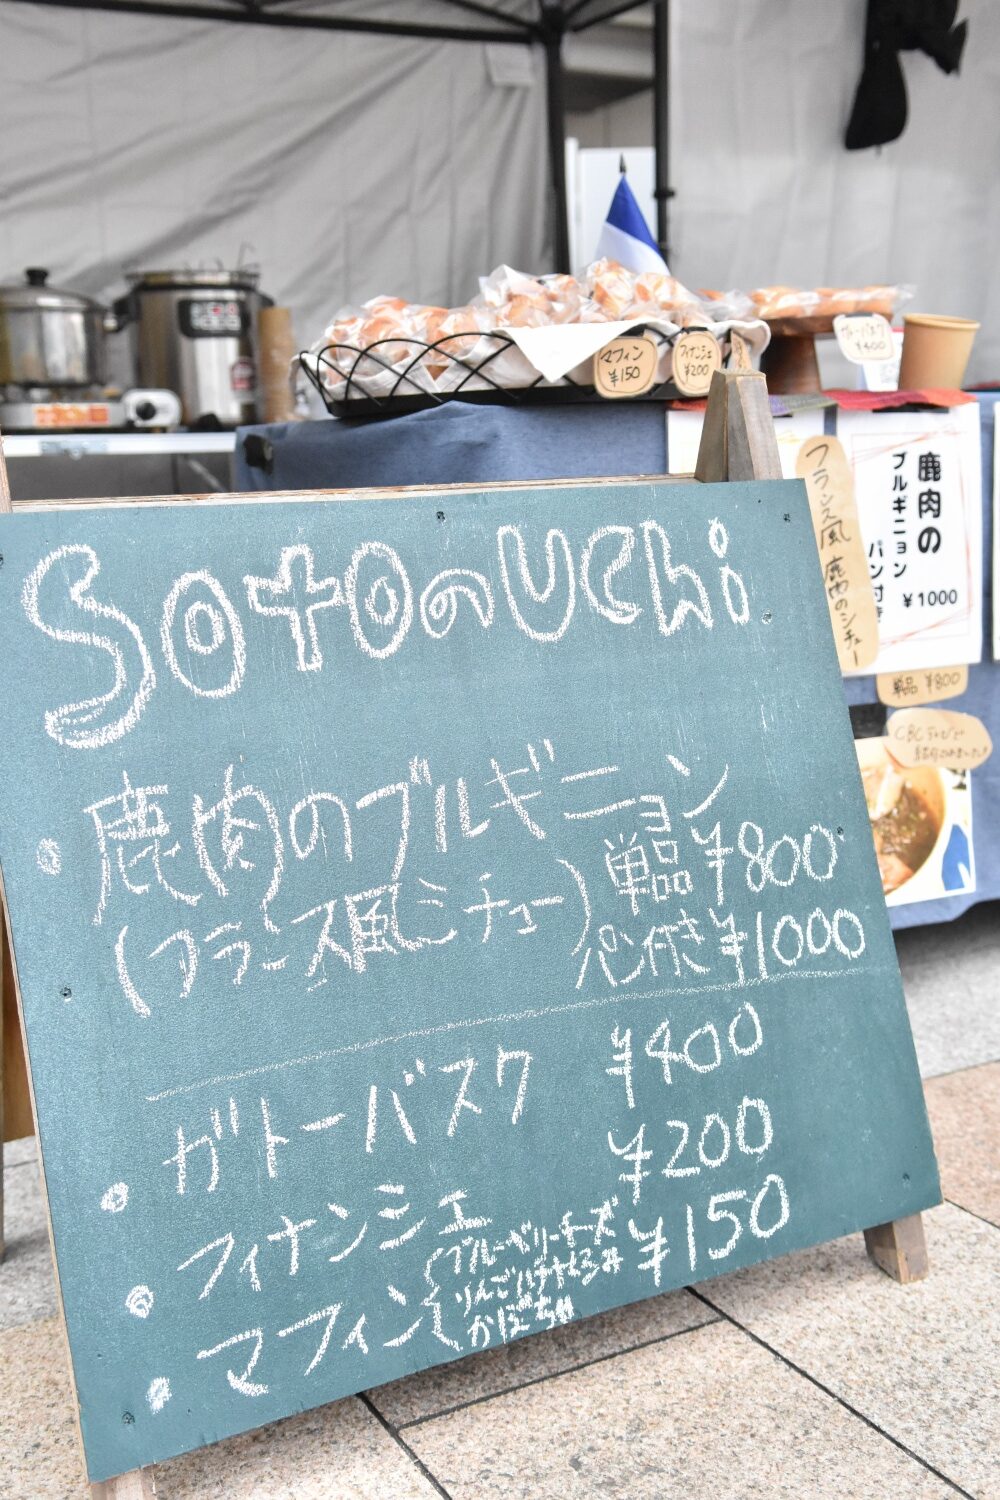 マフィン
¥150
フィナンシェ
¥200
ガトーバスク
¥400
フランス風鹿肉のシチュー
鹿肉の
ブルギニョン
パン付き
¥1000
単品 ¥800
CBCテレビで
SotoのUchi
・鹿肉のブルギニョン
(フランス風シチュー)
単品¥800
パン付き¥1000
・ガトーバスク ¥400
・フィナンシェ ¥200
・マフィン ¥150
ブルーベリーチーズ
りんごバナナくるみ
かぼちゃ